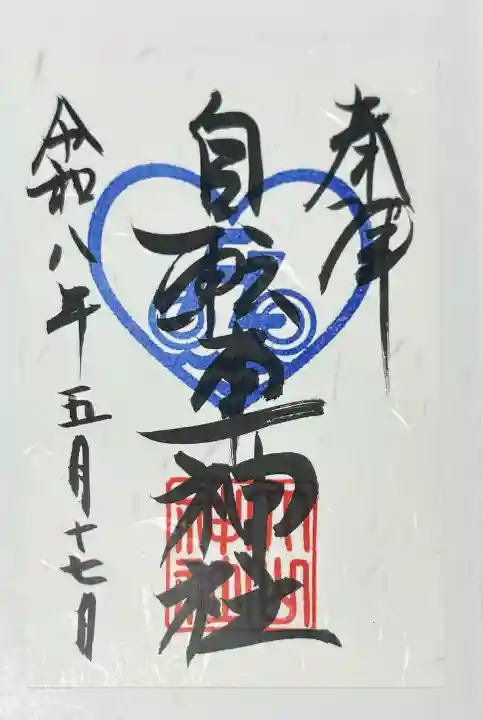 奉拝
自転車神社
令和八年五月十七日